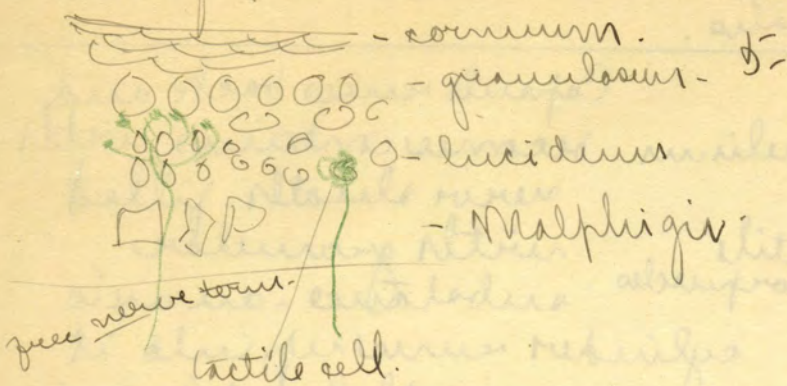 - cornium.
- granulosum - 5-
- lucidum
- Malphigii.
free nerve term.
tactile cell.